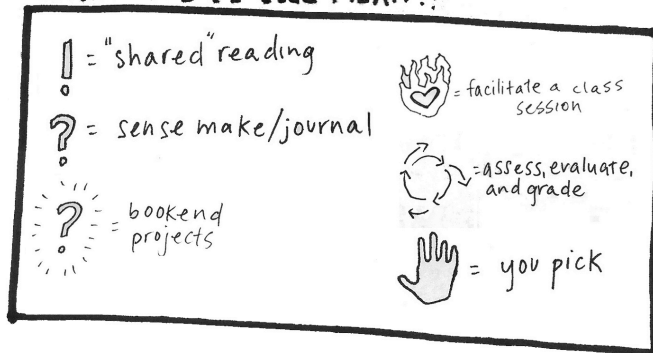 ! = "shared" reading
? = sense make/journal
? = bookend
projects
= facilitate a class
session
= assess, evaluate,
and grade
= you pick